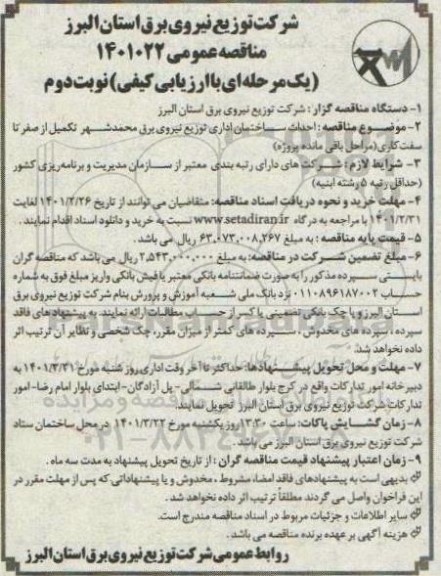 شرکت توزیع نیروی برق استان البرز
مناقصه عمومی ۱۴۰۱۰۲۲
(یک مرحله ای با ارزیابی کیفی) نوبت دوم
۱- دستگاه مناقصه گزار : شرکت توزیع نیروی برق استان البرز
۲- موضوع مناقصه : احداث ساختمان اداری توزیع نیروی برق محمدشهر تکمیل از صفر تا
سفت کاری (مراحل باقی مانده پروژه)
۳- شرایط لازم : شرکت های دارای رتبه بندی معتبر از سازمان مدیریت و برنامه ریزی کشور
(حداقل رتبه ۵ رشته ابنیه)
۴- مهلت خرید و نحوه دریافت اسناد مناقصه: متقاضیان می توانند از تاریخ ۱۴۰۱/۲/۲۶ لغایت
۱۴۰۱/۲/۳۱ با مراجعه به درگاه www.setadiran.ir نسبت به خرید و دانلود اسناد اقدام نمایند.
۵- قیمت پایه مناقصه : به مبلغ ۶۳،۰۷۳،۰۰۸،۲۶۷ ریال می باشد.
۶- مبلغ تضمین شرکت در مناقصه: به مبلغ ۲،۵۴۳،۰۰۰،۰۰۰ ریال می باشد که مناقصه گران
بایستی سپرده مذکور را به صورت ضمانتنامه بانکی معتبر یا فیش بانکی واریز مبلغ فوق به شماره
حساب ۰۱۱۰۸۹۶۱۸۷۰۰۲ نزد بانک ملی شعبه آموزش و پرورش بنام شرکت توزیع نیروی برق
استان البرز و یا چک بانکی تضمینی یا کسر از حساب مطالبات ارائه نمایند. به پیشنهاد های فاقد
سپرده، سپرده های مخدوش، سپرده های کمتر از میزان مقرر، چک شخصی و نظایر آن ترتیب اثر
داده نخواهد شد.
۷- مهلت و محل تحویل پیشنهادها: حداکثر تا آخر وقت اداری روز شنبه مورخ ۱۴۰۱/۳/۲۱ به
دبیرخانه امور تدارکات واقع در کرج بلوار طالقانی شمالی- پل آزادگان- ابتدای بلوار امام رضا- امور
تدارکات شرکت توزیع نیروی برق استان البرز تحویل نمایند.
۸- زمان گشایش پاکات: ساعت ۱۳:۳۰ روز یکشنبه مورخ ۱۴۰۱/۳/۲۲ در محل ساختمان ستاد
شرکت توزیع نیروی برق استان البرز می باشد.
۹- زمان اعتبار پیشنهاد قیمت مناقصه گران : از تاریخ تحویل پیشنهاد به مدت سه ماه .
بدیهی است به پیشنهادهای فاقد امضا، مشروط، مخدوش و یا پیشنهاداتی که پس از مهلت مقرر در
این فراخوان واصل می گردند مطلقا ترتیب اثر داده نخواهد شد.
سایر اطلاعات و جزئیات مربوط در اسناد مناقصه مندرج است.
هزینه آگهی بر عهده برنده مناقصه می باشد.
روابط عمومی شرکت توزیع نیروی برق استان البرز